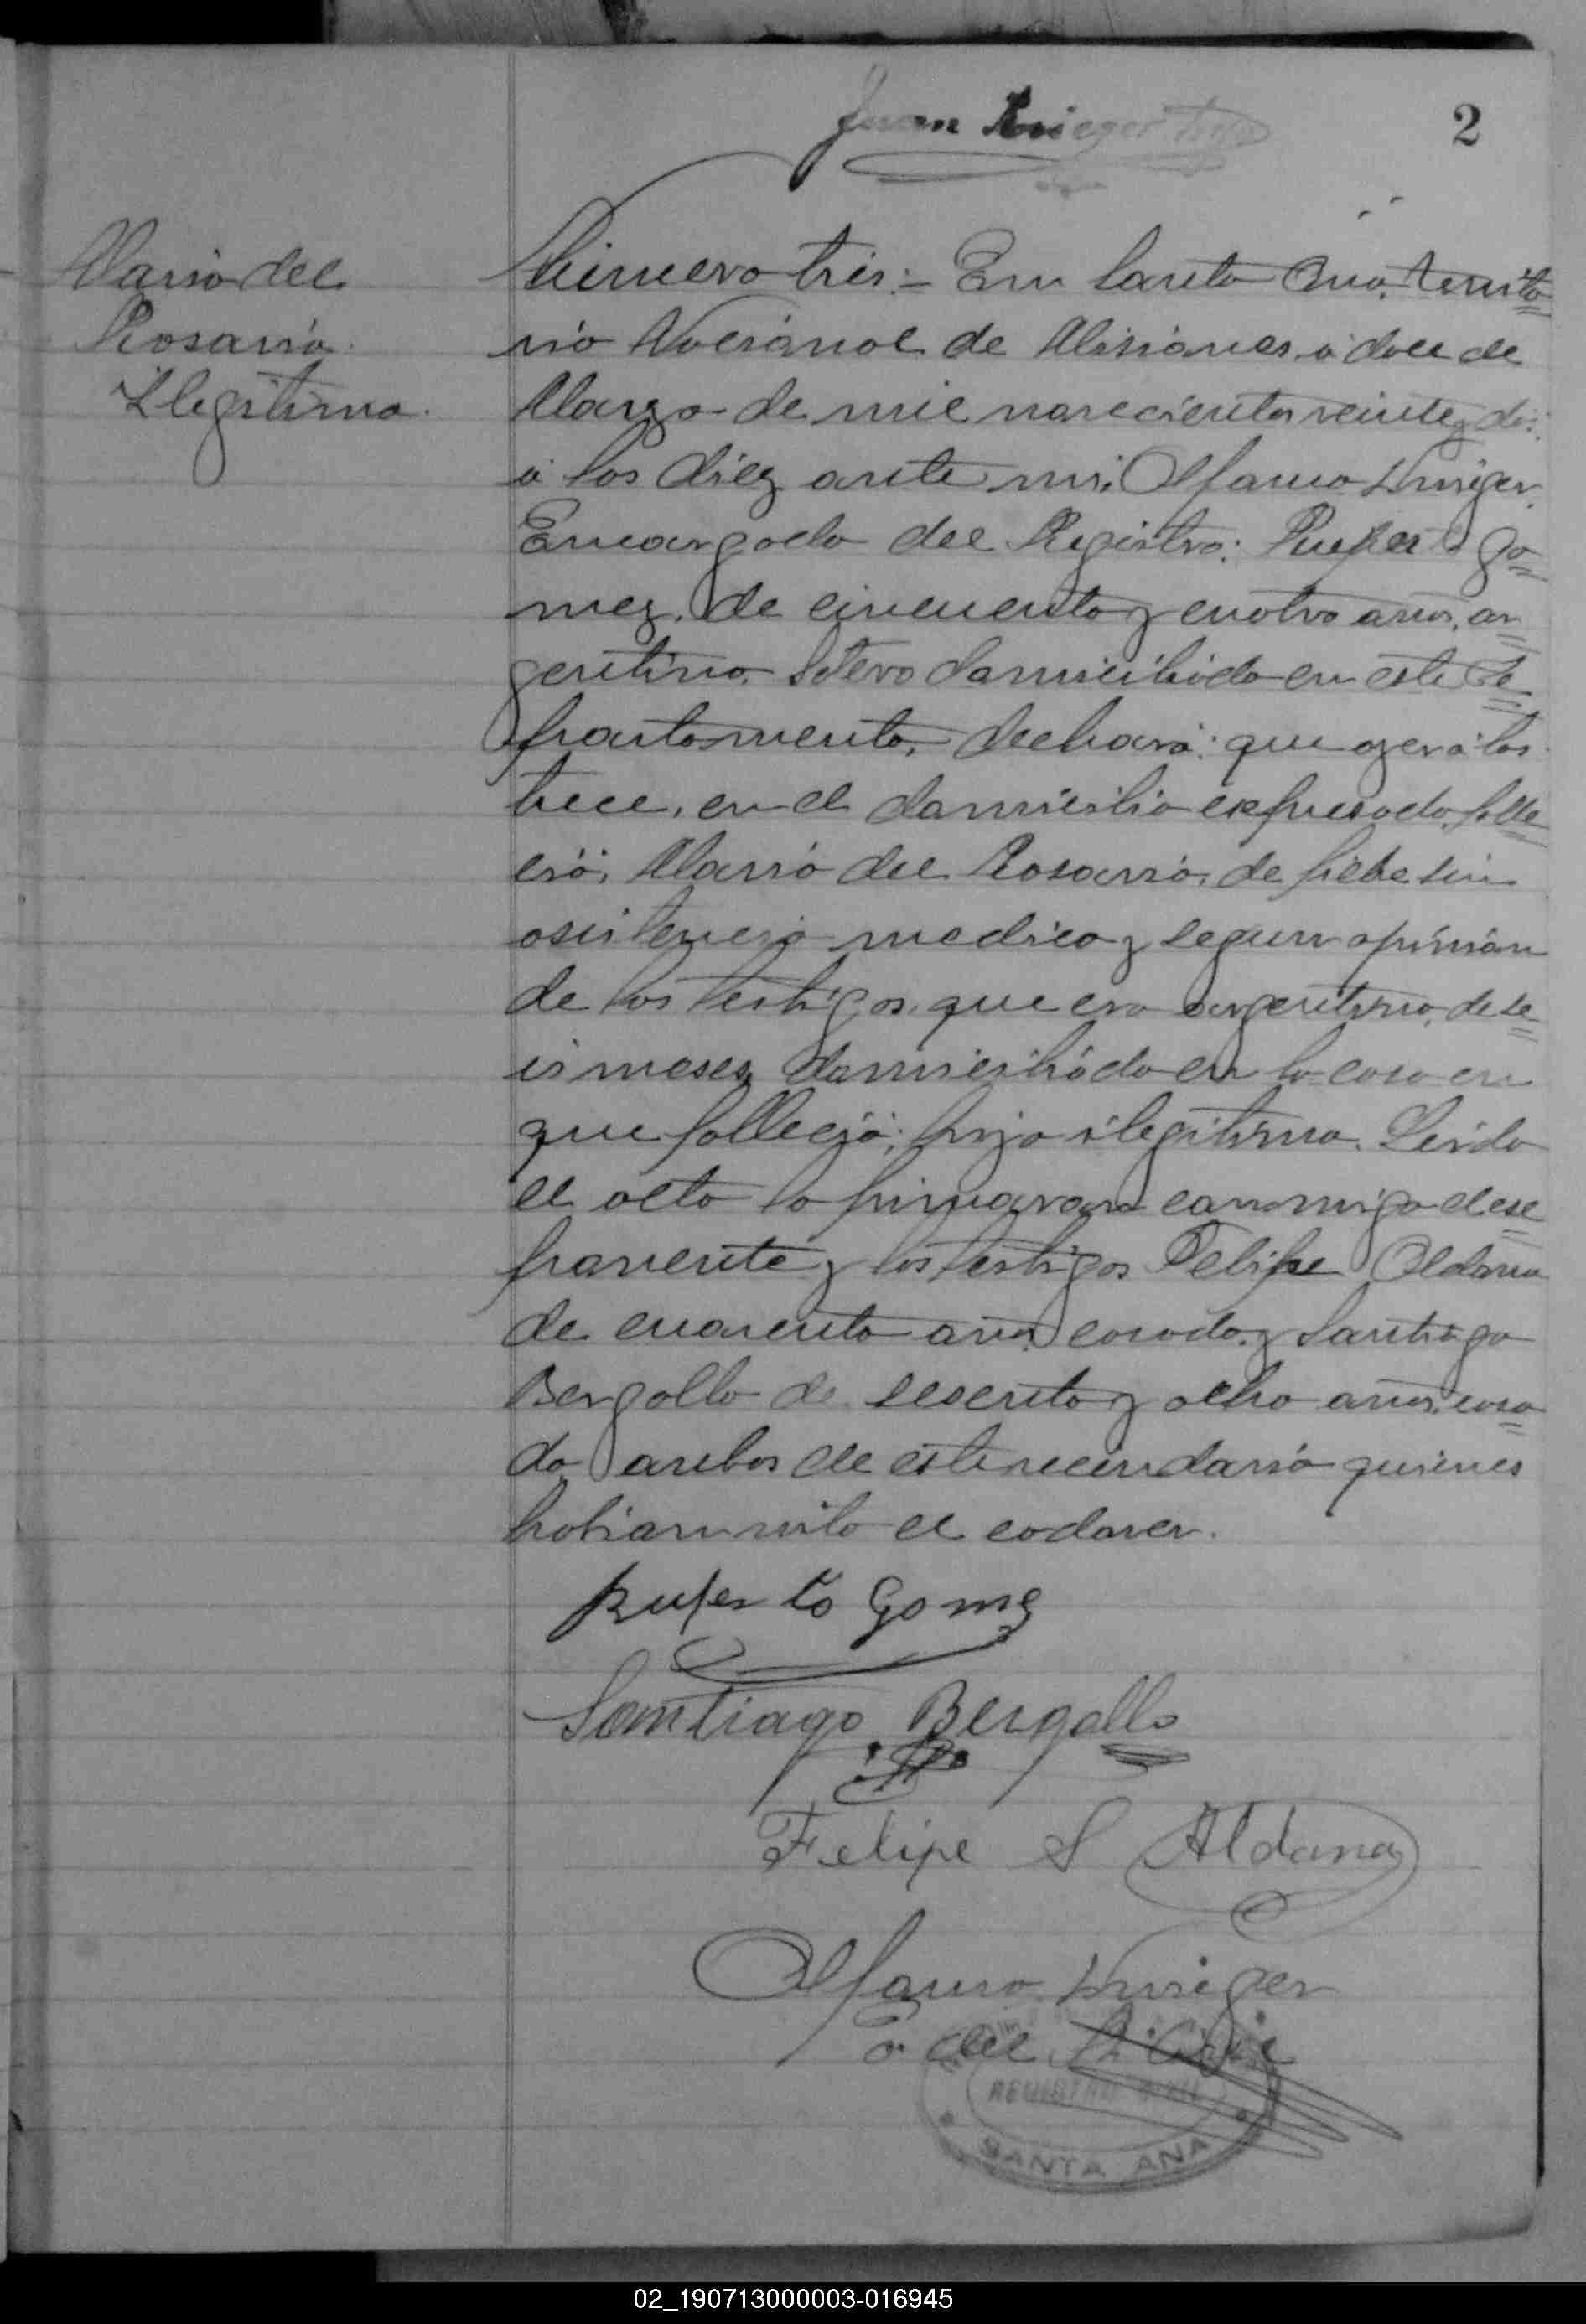 Juan Krieger
2
Mario del
Rosario.
Ilegitimo.
Numero tres:= En Santa Ana, territo=
rio Nacional de Misiones, á doce de
Marzo de mil novecientos veinte y dos:
á las diez ante mi, Alfauro Krieger,
Encargado del Registro: Ruperto Go=
mez, de cincuenta y cuatro años, ar=
gentino, soltero domiciliado en este De=
partamento, declaró: que ayer á las
trece, en el domicilio expresado, falle=
ció, Mario del Rosario, de fiebe sin
asistencia medica y segun opinión
de los testigos, que era argentino, de se=
is meses, domiciliado en la casa en
que falleció; hijo ilegitimo. Leida
el acta la firmaron conmigo el ex=
ponente y los testigos Felipe Aldana
de cuarenta años, casado, y Santiago
Bergallo de sesenta y ocho años, casa=
do, ambos de este vecindario quienes
habian visto el cadaver.
Ruperto Gomz
Santiago Bergallo
Felipe S Aldana
Alfauro Krieger
E. del R. Civil
REGISTRO CIVIL
SANTA ANA
02_190713000003-016945